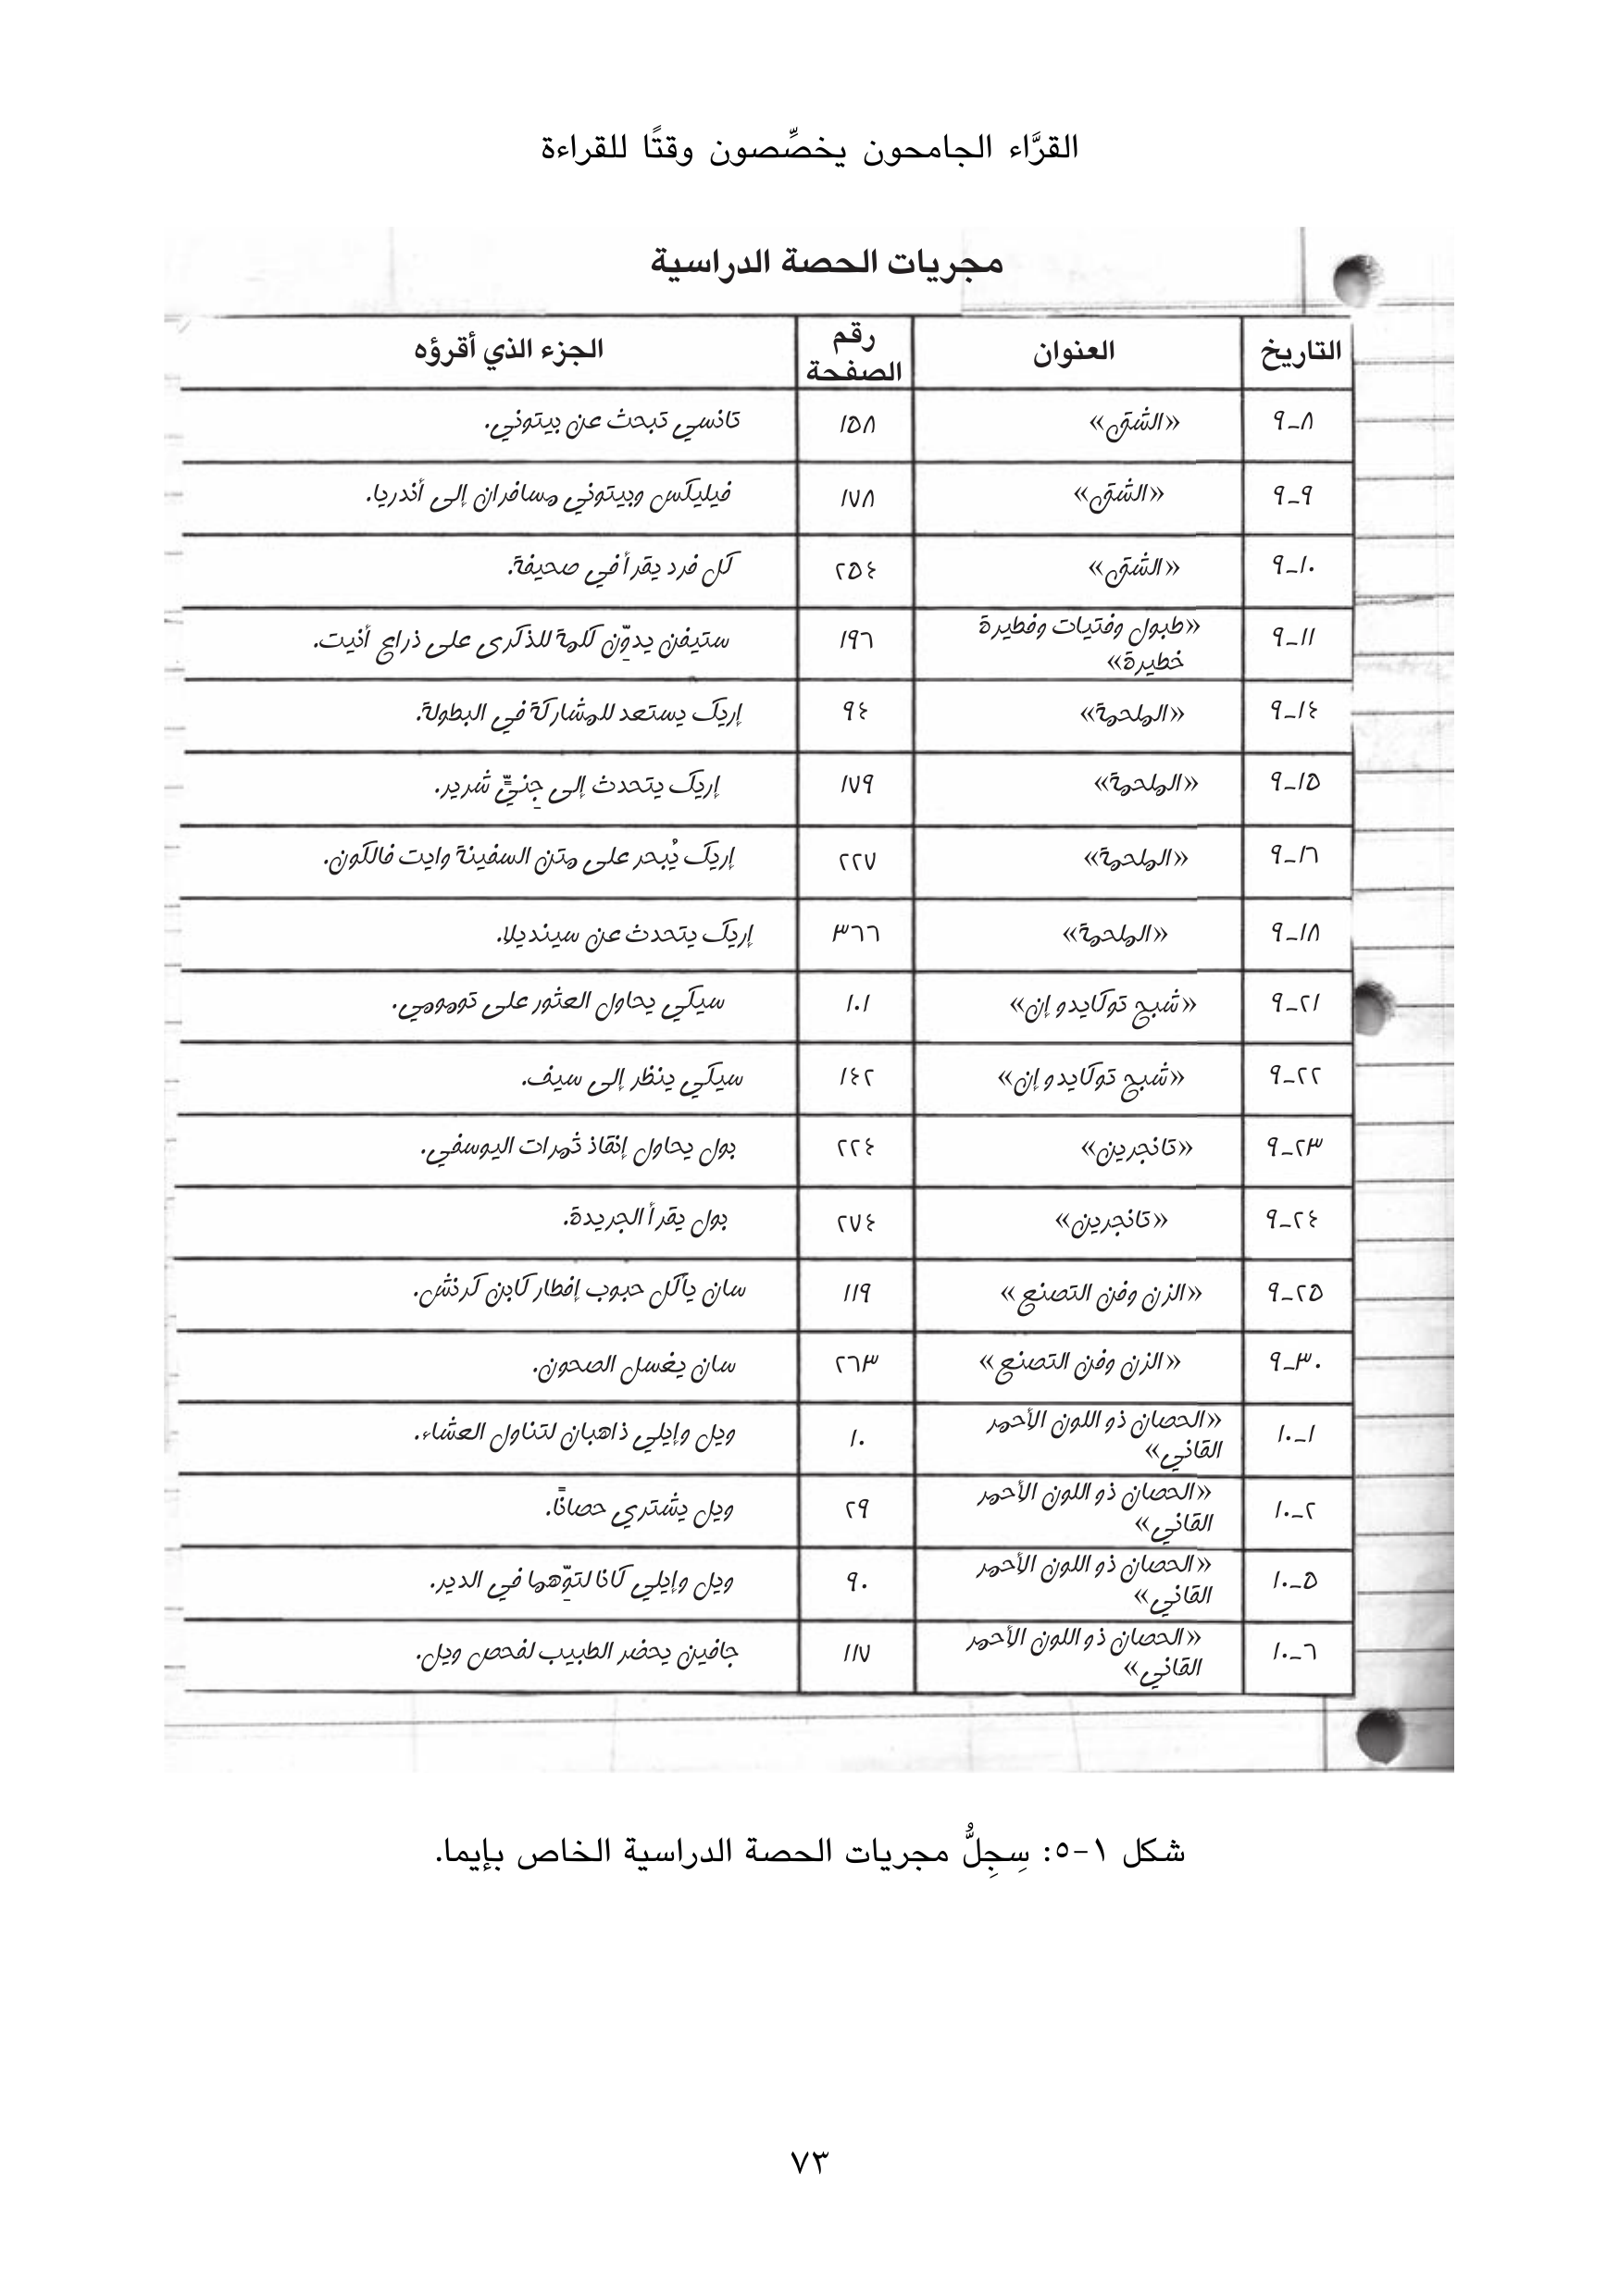 القرَّاء الجامحون يخصِّصون وقتًا للقراءة
مجريات الحصة الدراسية
التاريخ العنوان رقم الصفحة الجزء الذي أقرؤه
٨-٩ «الشق» ١٥٨ تانسي تبحث عن بيتوني.
٩-٩ «الشق» ١٧٨ فيليكس وبيتوني مسافران إلى أندريا.
١٠-٩ «الشق» ٢٥٤ كل فرد يقرأ في صحيفة.
١١-٩ «طبول وفتيات وفطيرة خطيرة» ١٩٦ ستيفن يدوِّن كلمة للذكرى على ذراع أنيت.
١٤-٩ «الملحمة» ٩٤ إريك يستعد للمشاركة في البطولة.
١٥-٩ «الملحمة» ١٧٩ إريك يتحدث إلى جِنيٍّ شرير.
١٦-٩ «الملحمة» ٢٢٧ إريك يُبحر على متن السفينة وايت فالكون.
١٨-٩ «الملحمة» ٣٦٦ إريك يتحدث عن سينديلا.
٢١-٩ «شبح توكايدو إن» ١٠١ سيكي يحاول العثور على تومومي.
٢٢-٩ «شبح توكايدو إن» ١٤٢ سيكي ينظر إلى سيف.
٢٣-٩ «تانجرين» ٢٢٤ بول يحاول إنقاذ ثمرات اليوسفي.
٢٤-٩ «تانجرين» ٢٧٤ بول يقرأ الجريدة.
٢٥-٩ «الزن وفن التصنع» ١١٩ سان يأكل حبوب إفطار كابن كرنش.
٣٠-٩ «الزن وفن التصنع» ٢٦٣ سان يغسل الصحون.
١-١٠ «الحصان ذو اللون الأحمر القاني» ١٠ ويل وإيلي ذاهبان لتناول العشاء.
٢-١٠ «الحصان ذو اللون الأحمر القاني» ٢٩ ويل يشتري حصانًا.
٥-١٠ «الحصان ذو اللون الأحمر القاني» ٩٠ ويل وإيلي كانا لتوِّهما في الدير.
٦-١٠ «الحصان ذو اللون الأحمر القاني» ١١٧ جافين يحضر الطبيب لفحص ويل.
شكل ١-٥: سِجِلُّ مجريات الحصة الدراسية الخاص بإيما.
٧٣